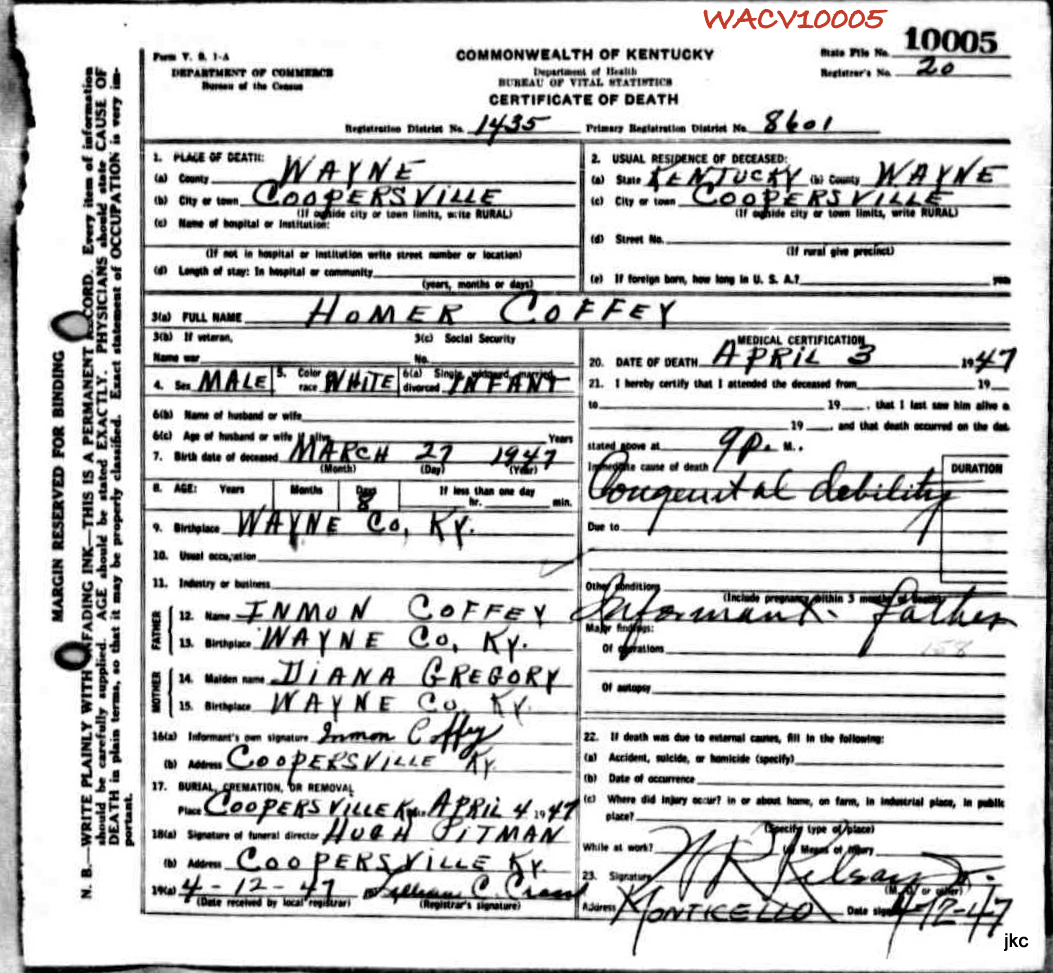 WACV10005
Form V. S. 1-A
DEPARTMENT OF COMMERCE
Bureau of the Census
COMMONWEALTH OF KENTUCKY
Department of Health
BUREAU OF VITAL STATISTICS
CERTIFICATE OF DEATH
State File No. 10005
Registrar's No. 20
Registration District No. 1435 Primary Registration District No. 8601
MARGIN RESERVED FOR BINDING
N. B.—WRITE PLAINLY WITH UNFADING INK—THIS IS A PERMANENT RECORD. Every item of information
should be carefully supplied. AGE should be stated EXACTLY. PHYSICIANS should state CAUSE OF
DEATH in plain terms, so that it may be properly classified. Exact statement of OCCUPATION is very im-
portant.
1. PLACE OF DEATH:
(a) County WAYNE
(b) City or town COOPERSVILLE
(If outside city or town limits, write RURAL)
(c) Name of hospital or Institution:
(If not in hospital or institution write street number or location)
(d) Length of stay: In hospital or community
(years, months or days)
2. USUAL RESIDENCE OF DECEASED:
(a) State KENTUCKY (b) County WAYNE
(c) City or town COOPERSVILLE
(If outside city or town limits, write RURAL)
(d) Street No.
(If rural give precinct)
(e) If foreign born, how long in U. S. A.? years
3(a) FULL NAME HOMER COFFEY
3(b) If veteran,
Name war
3(c) Social Security
No.
4. Sex MALE 5. Color race WHITE 6(a) Single, widowed, married, divorced INFANT
6(b) Name of husband or wife
6(c) Age of husband or wife if alive Years
7. Birth date of deceased MARCH 27 1947
(Month) (Day) (Year)
8. AGE: Years Months Days If less than one day
8 hr. min.
9. Birthplace WAYNE CO, KY.
10. Usual occupation
11. Industry or business
FATHER
12. Name INMON COFFEY
13. Birthplace WAYNE CO, KY.
MOTHER
14. Maiden name DIANA GREGORY
15. Birthplace WAYNE CO. KY.
16(a) Informant's own signature Inmon Coffey
(b) Address COOPERSVILLE KY.
17. BURIAL, CREMATION, OR REMOVAL
Place COOPERSVILLE KY. APRIL 4 1947
18(a) Signature of funeral director HUGH PITMAN
(b) Address COOPERSVILLE KY.
19(a) 4-12-47
(Date received by local registrar) (Registrar's signature)
MEDICAL CERTIFICATION
20. DATE OF DEATH APRIL 3 1947
21. I hereby certify that I attended the deceased from 19
to 19 , that I last saw him alive o
19 , and that death occurred on the dat
stated above at 9P. M.
Immediate cause of death
DURATION
Congenital debility
Due to
Other conditions
(Include pregnancy within 3 months of death)
Informant - father
Major findings:
Of operations 158
Of autopsy
22. If death was due to external causes, fill in the following:
(a) Accident, suicide, or homicide (specify)
(b) Date of occurrence
(c) Where did injury occur? in or about home, on farm, in industrial place, in public
place?
(Specify type of place)
While at work? (e) Means of injury
23. Signature
(M. D. or other)
Address MONTICELLO Date signed 4-12-47
jkc